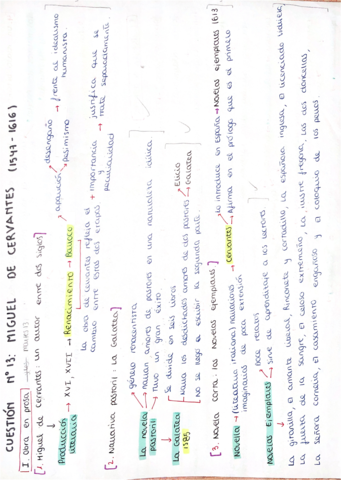 CUESTIÓN Nº 13: MIGUEL DE CERVANTES (1547-1616)
I. Obra en prosa
1. Miguel de Cervantes: un autor entre dos siglos
Producción literaria → XVI, XVII → Renacimiento - Barroco
aparición → desengaño
→ pesimismo
→ frente al idealismo humanista
La obra de Cervantes refleja el cambio entre estas dos etapas
+ importancia y peculiaridad → justifica que se trate separadamente
2. Narrativa pastoril: La Galatea
La novela pastoril
género renacentista
Narran amores de pastores en una naturaleza idílica
Tuvo un gran éxito
La Galatea 1585
Se divide en seis libros
Narra los desdichados amores de dos pastores → Elicio
→ Galatea
No se llegó a escribir la segunda parte.
3. Novela corta: las novelas ejemplares
Lo introduce en España → Novelas ejemplares 1613
Novella (literatura italiana) narraciones imaginarias de poca extensión
Cervantes → Afirma en el prólogo que es el primero
Novelas Ejemplares
doce relatos
sirve de aprendizaje a los lectores
La gitanilla, el amante liberal, Rinconete y Cortadillo, La española inglesa, el licenciado vidriera,
La fuerza de la sangre, el celoso extremeño, La ilustre fregona, Las dos doncellas,
La señora Cornelia, el casamiento engañoso y el coloquio de los perros